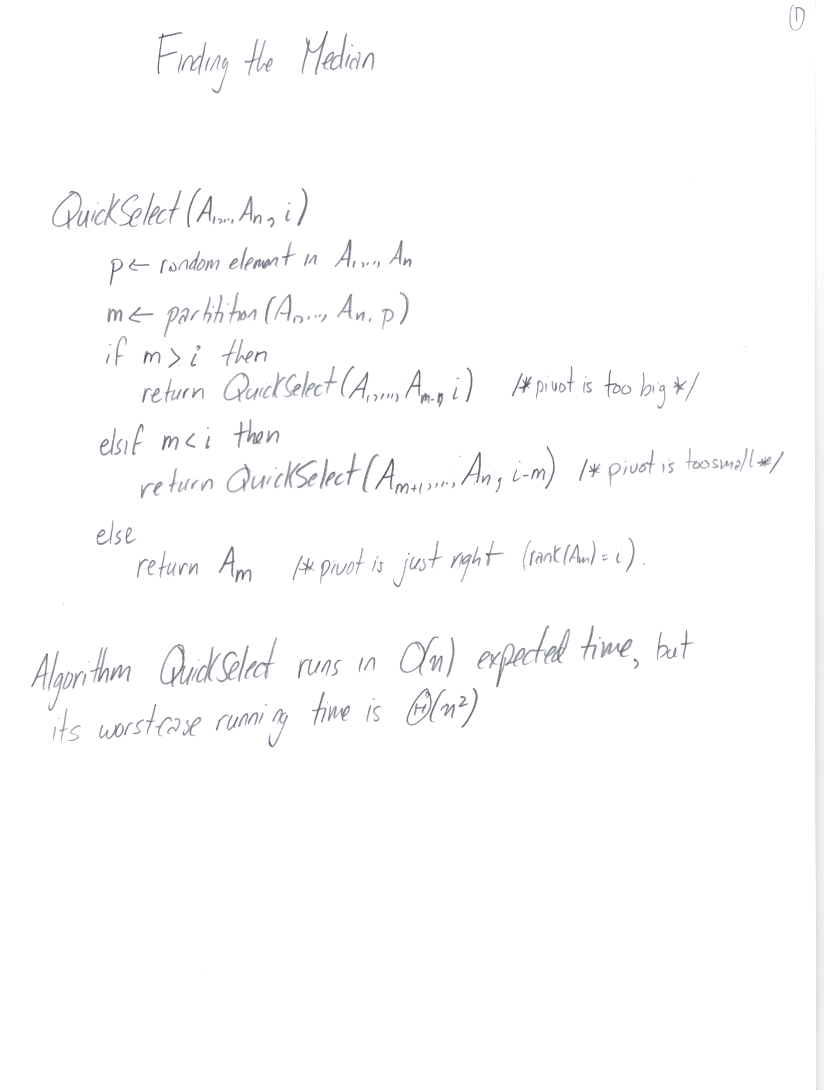 ①
Finding the Median
QuickSelect(A₁,..., Aₙ, i)
p ← random element in A₁,..., Aₙ
m ← partition(A₁,..., Aₙ, p)
if m > i then
return QuickSelect(A₁,..., Aₘ₋₁, i) /* pivot is too big */
elsif m < i then
return QuickSelect(Aₘ₊₁,..., Aₙ, i-m) /* pivot is too small */
else
return Aₘ /* pivot is just right (rank(Aₘ) = i).
Algorithm QuickSelect runs in O(n) expected time, but
its worst-case running time is Θ(n²)